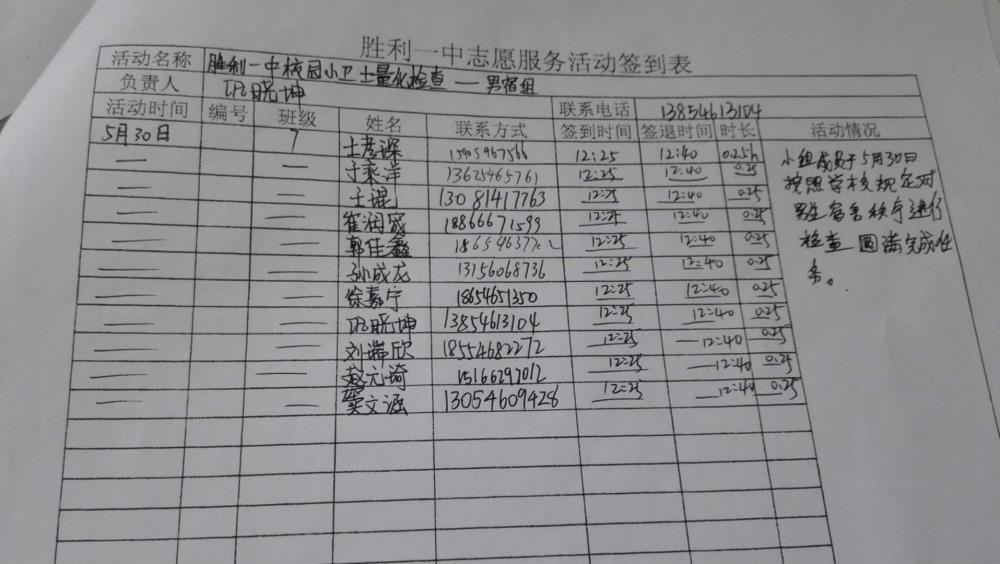 胜利一中志愿服务活动签到表
活动名称 胜利一中校园小卫士量化检查——男宿组
负责人 巩晓坤 联系电话 13854613104
活动时间 编号 班级 姓名 联系方式 签到时间 签退时间 时长 活动情况
5月30日 7 王彦琛 12:25 12:40 0.25h
— — 于乘洋 13625465761 12:25 12:40 0.25
— — 王琨 13081417763 12:25 12:40 0.25
— — 崔润宸 18866671599 12:25 12:40 0.25
— — 郭佳鑫 12:25 12:40 0.25
— — 孙成龙 13156068736 12:25 12:40 0.25
— — 徐嘉宁 18654651350 12:25 12:40 0.25
— — 巩晓坤 13854613104 12:25 12:40 0.25
— — 刘瑞欣 18554682272 12:25 —12:40 0.25
— — 赵元琦 15166297012 12:25 —12:40 0.25
— — 窦文涵 13054609428 12:25 —12:40 0.25
小组成员于5月30日
按照学校规定对
男生宿舍秩序进行
检查 圆满完成任
务。